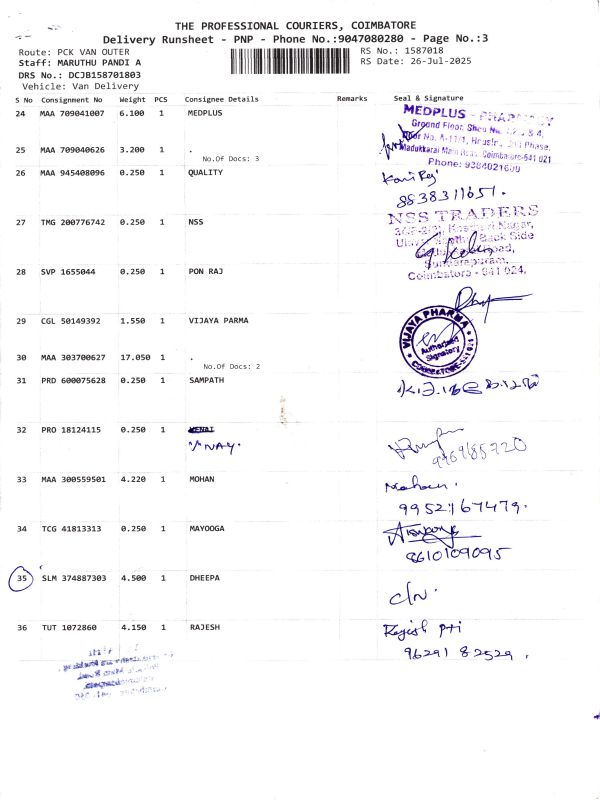 THE PROFESSIONAL COURIERS, COIMBATORE
Delivery Runsheet - PNP - Phone No.:9047080280 - Page No.:3
Route: PCK VAN OUTER
RS No.: 1587018
Staff: MARUTHU PANDI A
RS Date: 26-Jul-2025
DRS No.: DCJB158701803
Vehicle: Van Delivery
S No Consignment No Weight PCS Consignee Details Remarks Seal & Signature
24 MAA 709041007 6.100 1 MEDPLUS
MEDPLUS - PHARMACY
Ground Floor, & 4,
Phase,
Madukkarai Main Coimbatore-641 021
Phone: 9384021600
25 MAA 709040626 3.200 1 .
No.Of Docs: 3
26 MAA 945408096 0.250 1 QUALITY
8838311651.
27 TMG 200776742 0.250 1 NSS
NSS TRADERS
Nagar,
Back Side
Road,
Sundarapuram,
Coimbatore - 641 024.
28 SVP 1655044 0.250 1 PON RAJ
29 CGL 50149392 1.550 1 VIJAYA PARMA
VIJAYA PHARMA
Authorised
Signatory
COIMBATORE-641 024
30 MAA 303700627 17.050 1 .
No.Of Docs: 2
31 PRD 600075628 0.250 1 SAMPATH
32 PRO 18124115 0.250 1
33 MAA 300559501 4.220 1 MOHAN
Mohan.
9952167479.
34 TCG 41813313 0.250 1 MAYOOGA
8610109095
35 SLM 374887303 4.500 1 DHEEPA
c/n.
36 TUT 1072860 4.150 1 RAJESH
96291 82529.